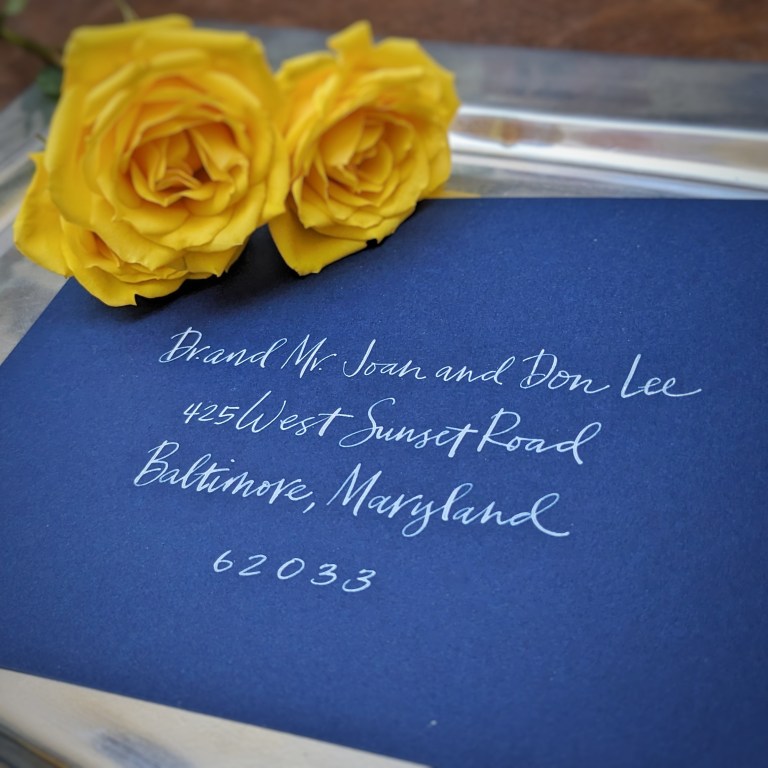 Dr. and Mr. Joan and Don Lee
425 West Sunset Road
Baltimore, Maryland
62033